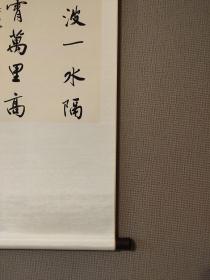 波一水隔
霄萬里高